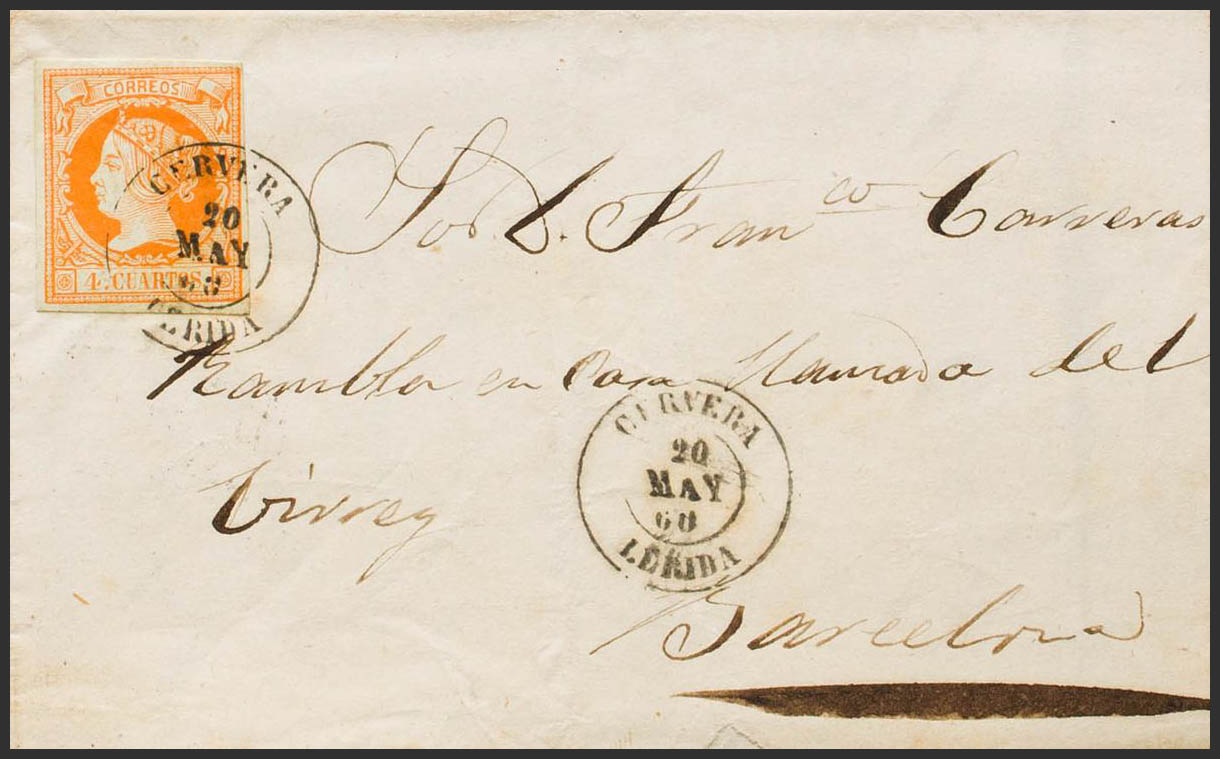 CORREOS
4 CUARTOS
CERVERA
20
MAY
60
LERIDA
Sor. D. Franco Carreras
Rambla en Casa llamada del
Virrey
CERVERA
20
MAY
60
LERIDA
Barcelona